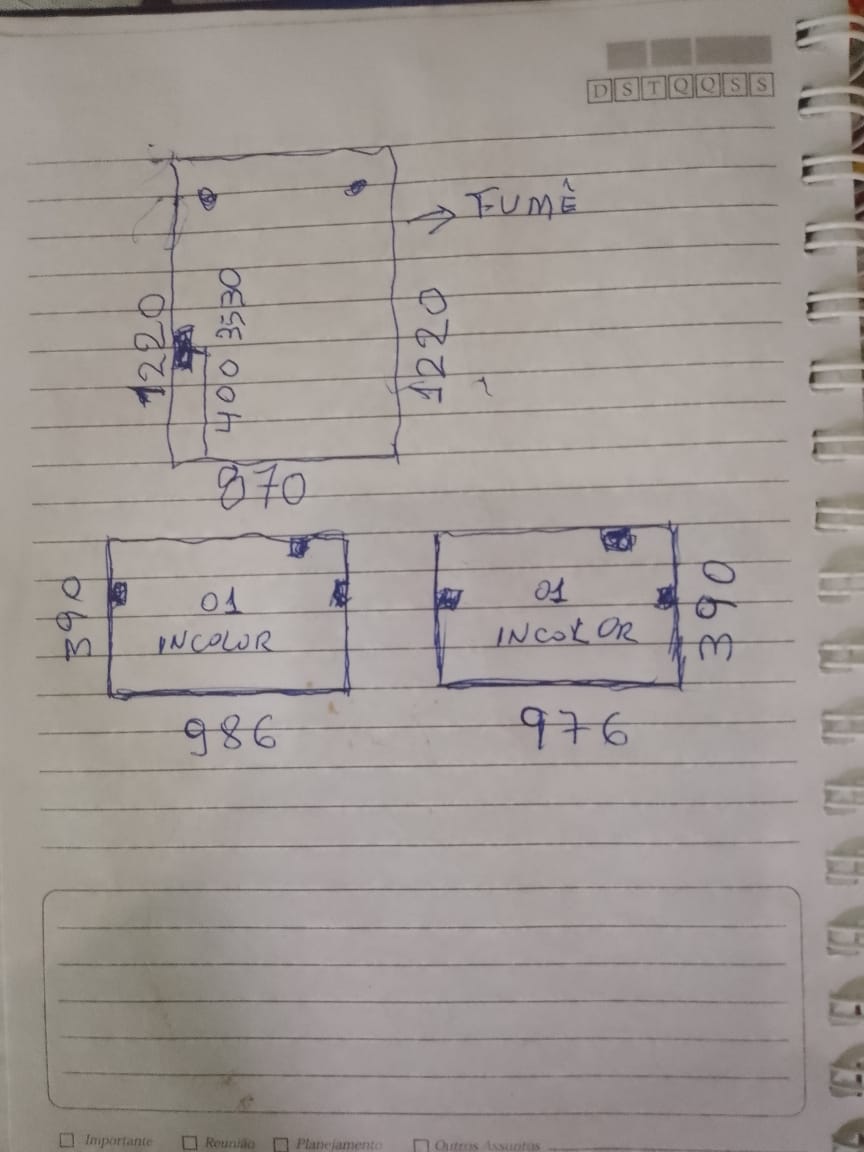 D S T Q Q S S
FUMÊ
1220
400 3530
1220
870
390
01
INCOLOR
986
01
INCOLOR
390
976
Importante Reunião Planejamento Outros Assuntos